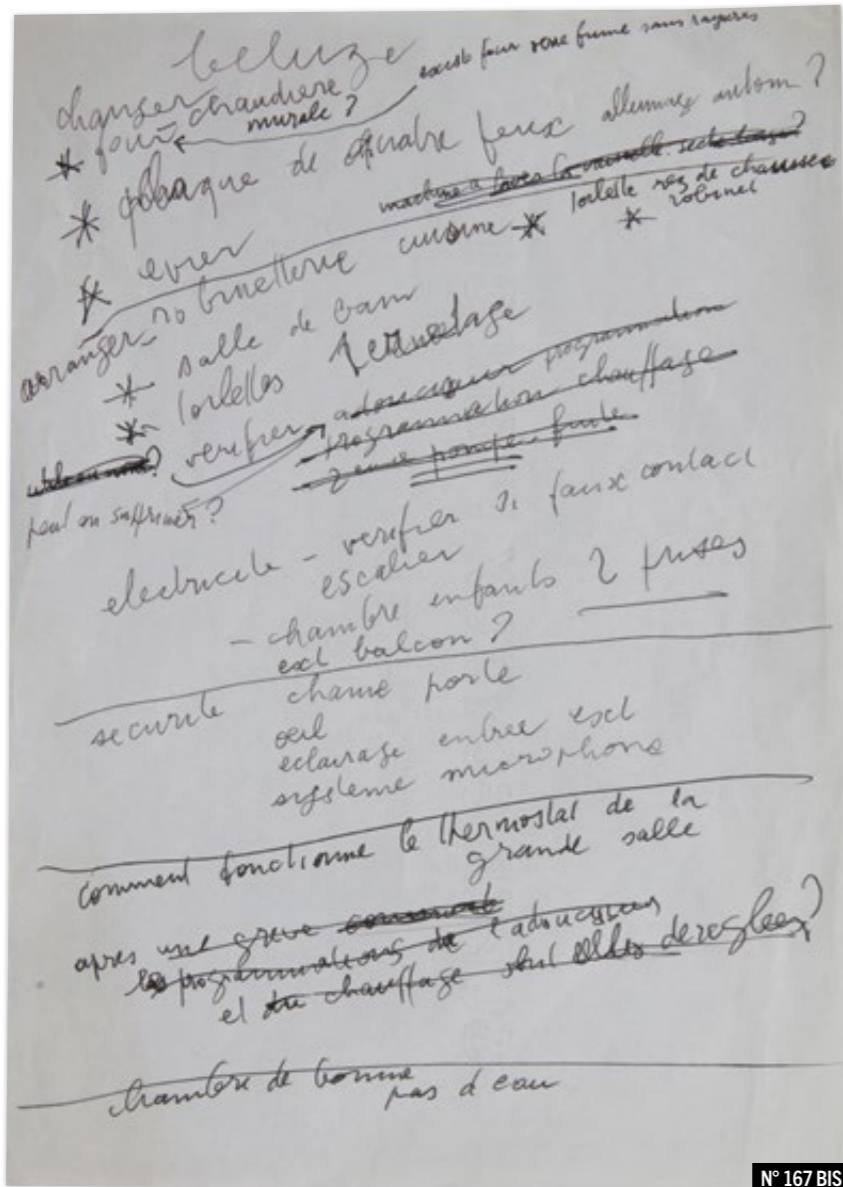 beluze
changer chaudiere
murale ?
existe four verre fume sans rayures
* four
* plaque de quatre feux allumage autom ?
machine a laver la vaisselle seche linge ?
* evier
arranger - robinetterie cuisine * toilette rez de chaussee
* robinet
* salle de bain
* toilettes
verifier adoucisseur programmation
programmation chauffage
2 eme pompe fuite
utile ou non ?
peut on supprimer ?
electricite - verifier si faux contact
escalier
- chambre enfants 2 prises
ext balcon ?
securite chaine porte
oeil
eclairage entree ext
systeme microphone
comment fonctionne le thermostat de la
grande salle
apres une greve comment
les programmations de l adoucisseur
et du chauffage sont elles dereglees ?
chambre de bonne
pas d eau
N° 167 BIS